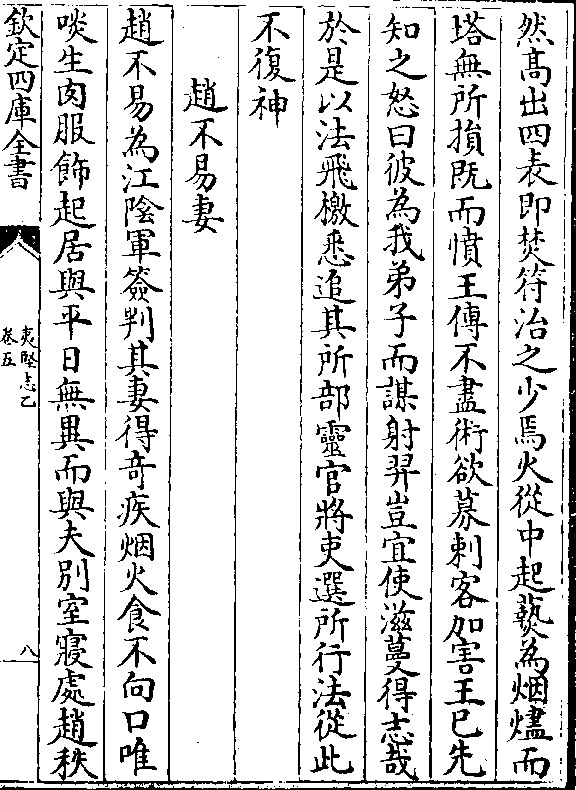 然髙出四表即焚符治之少焉火從中起爇為烟燼而
塔無所損既而憤王傳不盡術欲募刺客加害王已先
知之怒曰彼為我弟子而謀射羿豈宜使滋蔓得志哉
於是以法飛檄悉追其所部靈官將吏選所行法從此
不復神
趙不易妻
趙不易為江隂軍簽判其妻得竒疾烟火食不向口唯
啖生肉服飾起居與平日無異而與夫别室寢處趙秩
欽定四庫全書
夷堅志乙
卷五
八